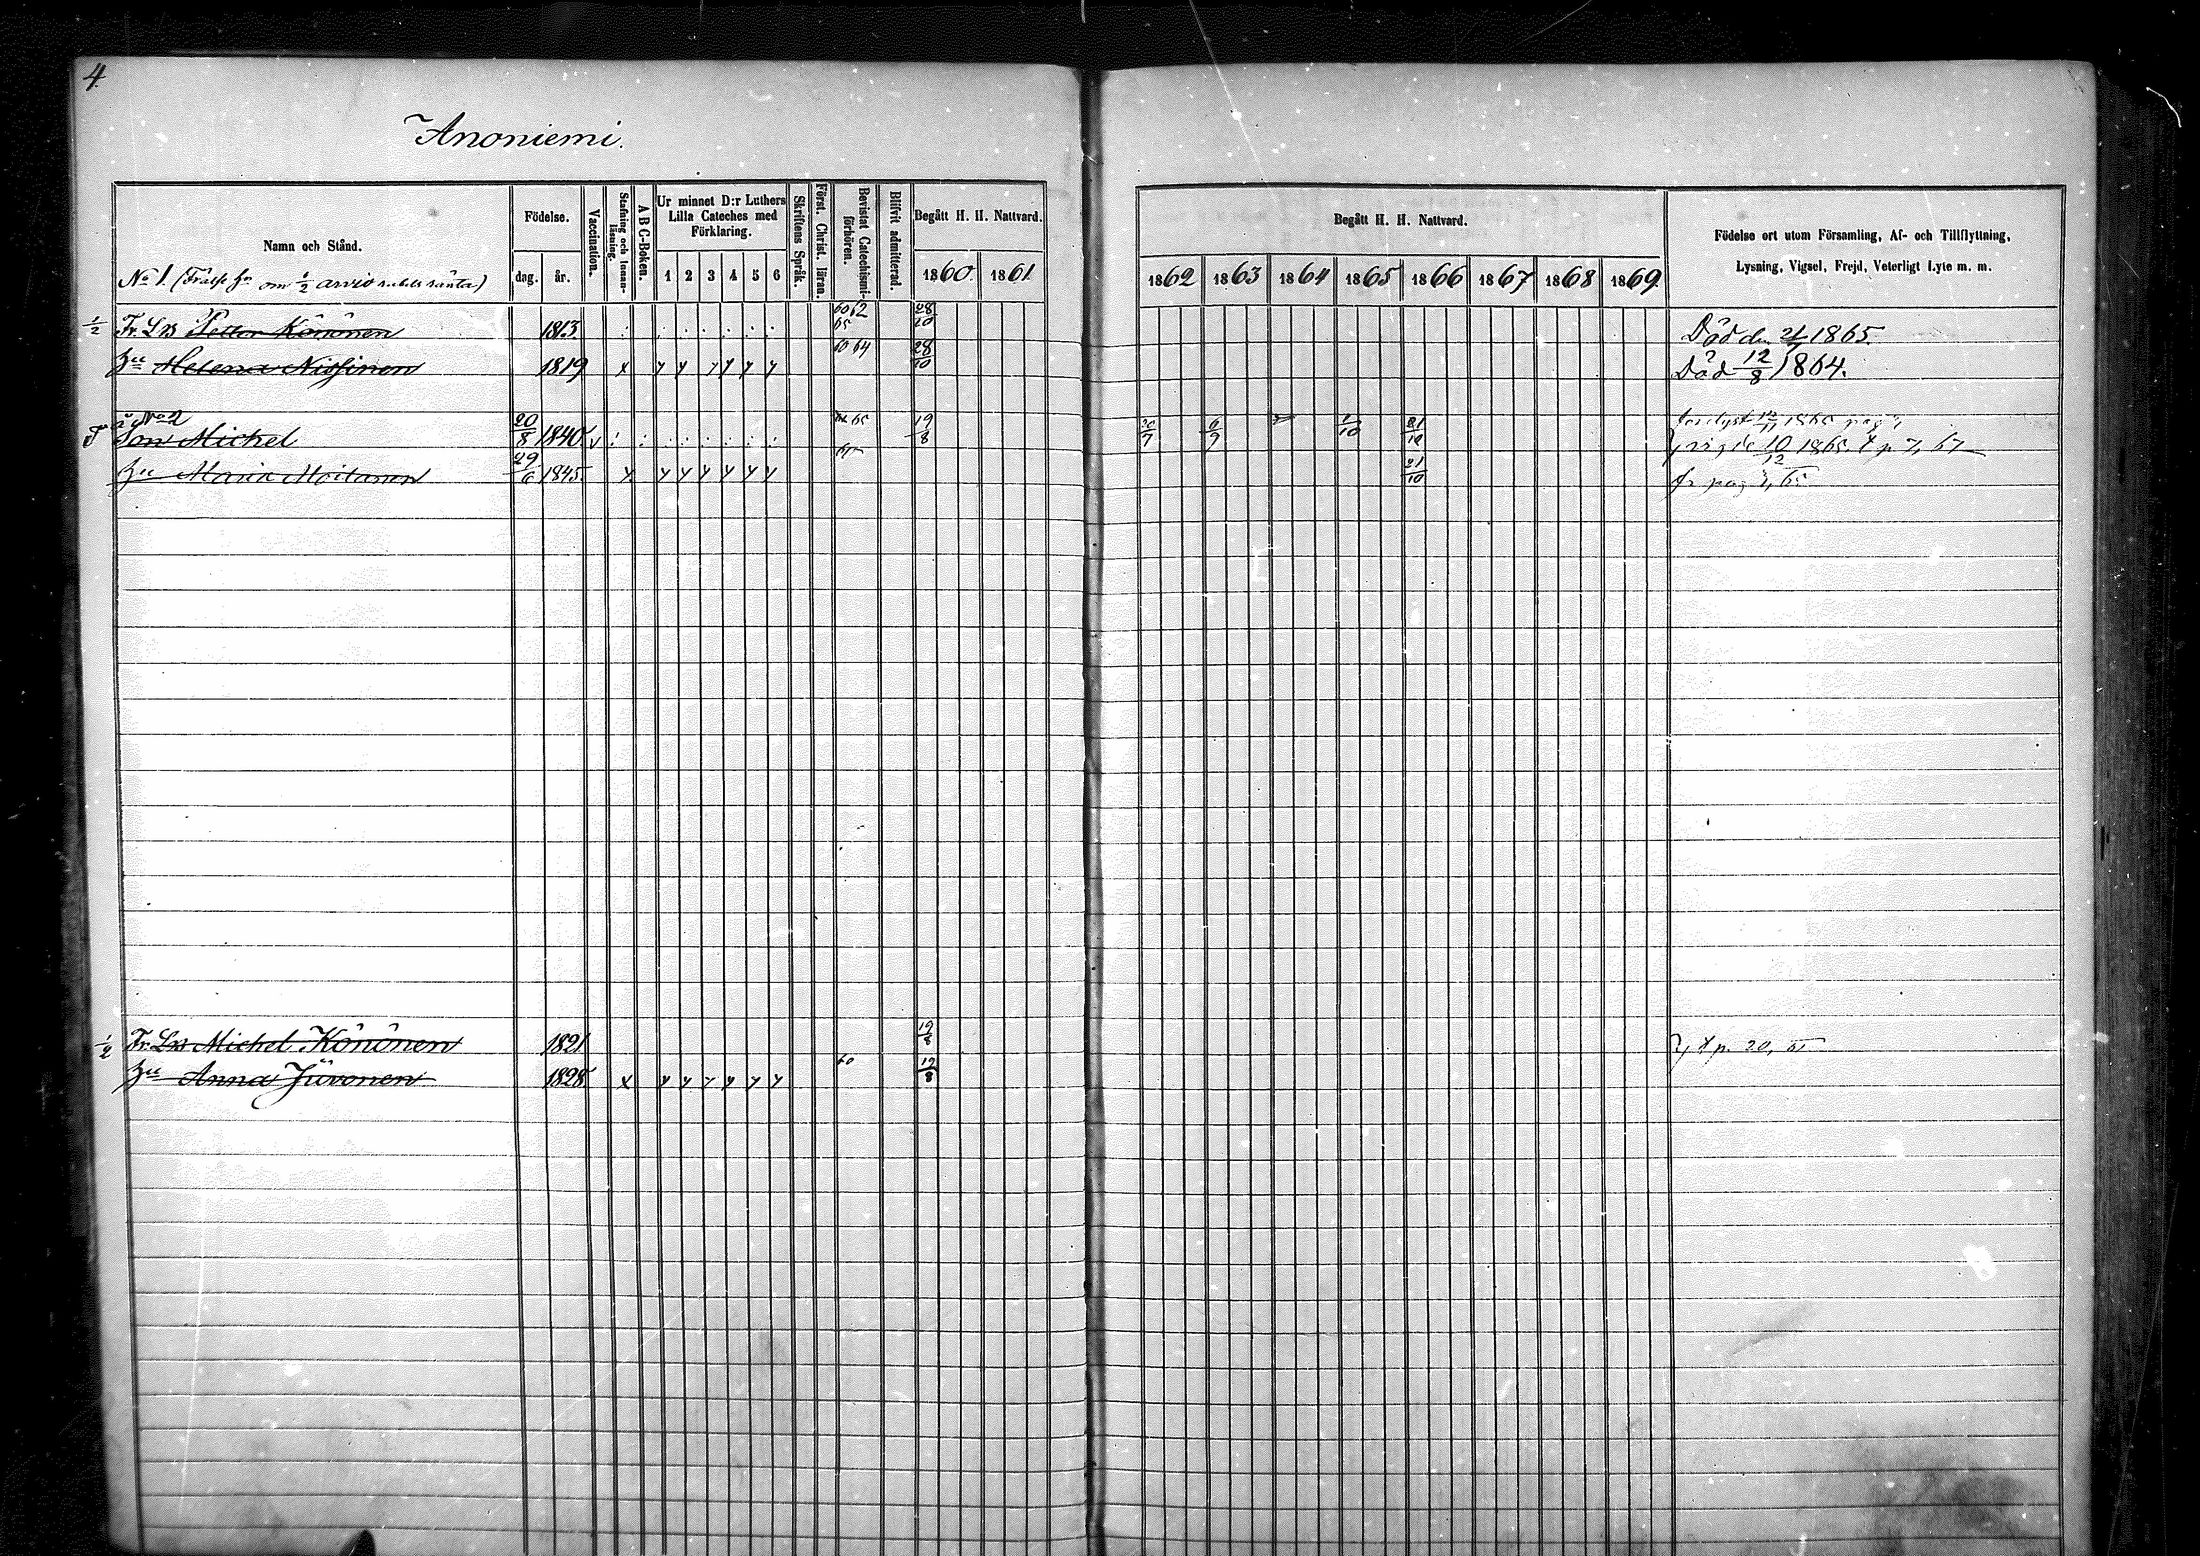 4.
Anoniemi.
Namn och Stånd. Födelse. dag. år. Vaccination. Stafning och Innanläsning. A B C-Boken. Ur minnet D:r Luthers Lilla Cateches med Förklaring. 1 2 3 4 5 6 Skriftens Språk. Först. Christ. läran. Bevistat Catechismi-förhören. Blifvit admitterad. Begått H. H. Nattvard. 1860. 1861.
Begått H. H. Nattvard. 1862 1863 1864 1865 1866 1867 1868 1869.
Födelse ort utom Församling, Af- och Tillflyttning,
Lysning, Vigsel, Frejd, Veterligt Lyte m. m.
No 1. (Frälse hn om 1/2 arvio ränta)
1/2 Fr. Lb Petter Könönen 1813. 60 62 65 28/10 Död den 1865.
Hu Helena Nissinen 1819 x y y y y y y 60 64 28/10 Död 12/8 1864.
å No 2
Son Michel 20/8 1840 v 65 19/8 20/7 6/9 1/10 21/10 1865 pag
Hu Maria Moilanen 29/6 1845. x y y y y y y 21/10 10/12 1865. p 7, 67
fr pag 65
1/2 Fr. Lb Michel Könönen 1821 19/8 p. 20,
Hu Anna Jüvonen 1828 x y y y y y y 60 19/8